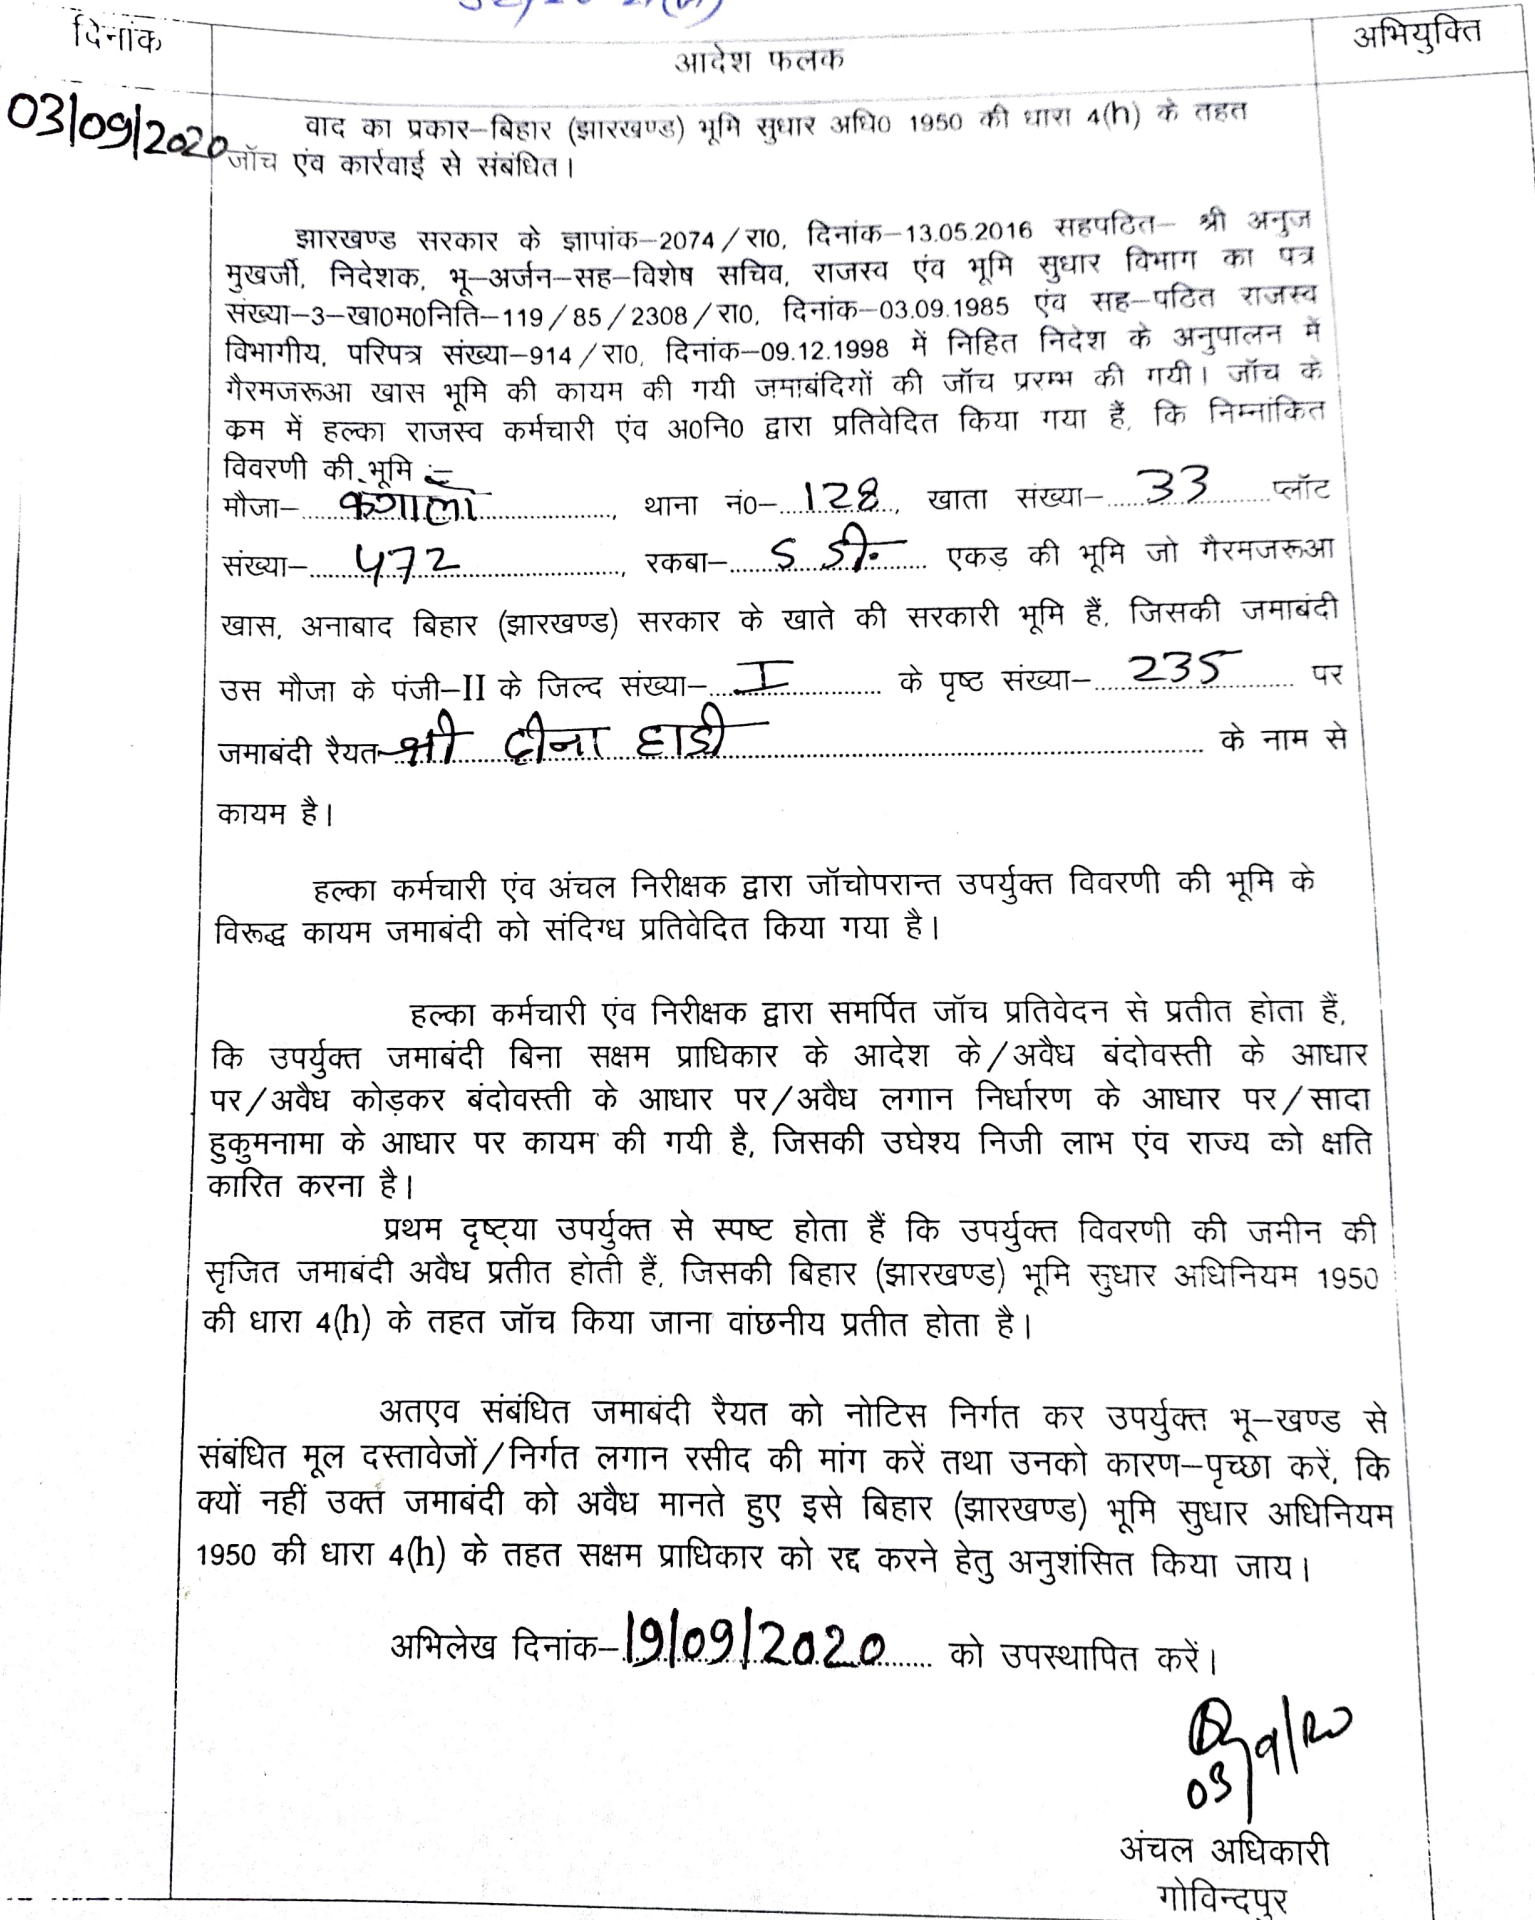 दिनांक
आदेश फलक
अभियुक्ति
03/09/2020
वाद का प्रकार–बिहार (झारखण्ड) भूमि सुधार अधि0 1950 की धारा 4(h) के तहत
जॉच एंव कार्रवाई से संबंधित।
झारखण्ड सरकार के ज्ञापांक–2074/रा0, दिनांक–13.05.2016 सहपठित– श्री अनुज
मुखर्जी, निदेशक, भू–अर्जन–सह–विशेष सचिव, राजस्व एंव भूमि सुधार विभाग का पत्र
संख्या–3–खा0म0निति–119/85/2308/रा0, दिनांक–03.09.1985 एंव सह–पठित राजस्व
विभागीय, परिपत्र संख्या–914/रा0, दिनांक–09.12.1998 में निहित निदेश के अनुपालन में
गैरमजरूआ खास भूमि की कायम की गयी जमाबंदियों की जॉच प्ररम्भ की गयी। जॉच के
क्रम में हल्का राजस्व कर्मचारी एंव अ0नि0 द्वारा प्रतिवेदित किया गया हैं, कि निम्नांकित
विवरणी की भूमि :–
मौजा–..........., थाना नं0–128, खाता संख्या–33 प्लॉट
संख्या–472, रकबा–5 डी. एकड़ की भूमि जो गैरमजरूआ
खास, अनाबाद बिहार (झारखण्ड) सरकार के खाते की सरकारी भूमि हैं, जिसकी जमाबंदी
उस मौजा के पंजी–II के जिल्द संख्या–I के पृष्ठ संख्या–235 पर
जमाबंदी रैयत–श्री टीना हाडी के नाम से
कायम है।
हल्का कर्मचारी एंव अंचल निरीक्षक द्वारा जॉचोपरान्त उपर्युक्त विवरणी की भूमि के
विरूद्ध कायम जमाबंदी को संदिग्ध प्रतिवेदित किया गया है।
हल्का कर्मचारी एंव निरीक्षक द्वारा समर्पित जॉच प्रतिवेदन से प्रतीत होता हैं,
कि उपर्युक्त जमाबंदी बिना सक्षम प्राधिकार के आदेश के/अवैध बंदोवस्ती के आधार
पर/अवैध कोड़कर बंदोवस्ती के आधार पर/अवैध लगान निर्धारण के आधार पर/सादा
हुकुमनामा के आधार पर कायम की गयी है, जिसकी उघेश्य निजी लाभ एंव राज्य को क्षति
कारित करना है।
प्रथम दृष्ट्या उपर्युक्त से स्पष्ट होता हैं कि उपर्युक्त विवरणी की जमीन की
सृजित जमाबंदी अवैध प्रतीत होती हैं, जिसकी बिहार (झारखण्ड) भूमि सुधार अधिनियम 1950
की धारा 4(h) के तहत जॉच किया जाना वांछनीय प्रतीत होता है।
अतएव संबंधित जमाबंदी रैयत को नोटिस निर्गत कर उपर्युक्त भू–खण्ड से
संबंधित मूल दस्तावेजों/निर्गत लगान रसीद की मांग करें तथा उनको कारण–पृच्छा करें, कि
क्यों नहीं उक्त जमाबंदी को अवैध मानते हुए इसे बिहार (झारखण्ड) भूमि सुधार अधिनियम
1950 की धारा 4(h) के तहत सक्षम प्राधिकार को रद्द करने हेतु अनुशंसित किया जाय।
अभिलेख दिनांक–19/09/2020 को उपस्थापित करें।
03/9/20
अंचल अधिकारी
गोविन्दपुर